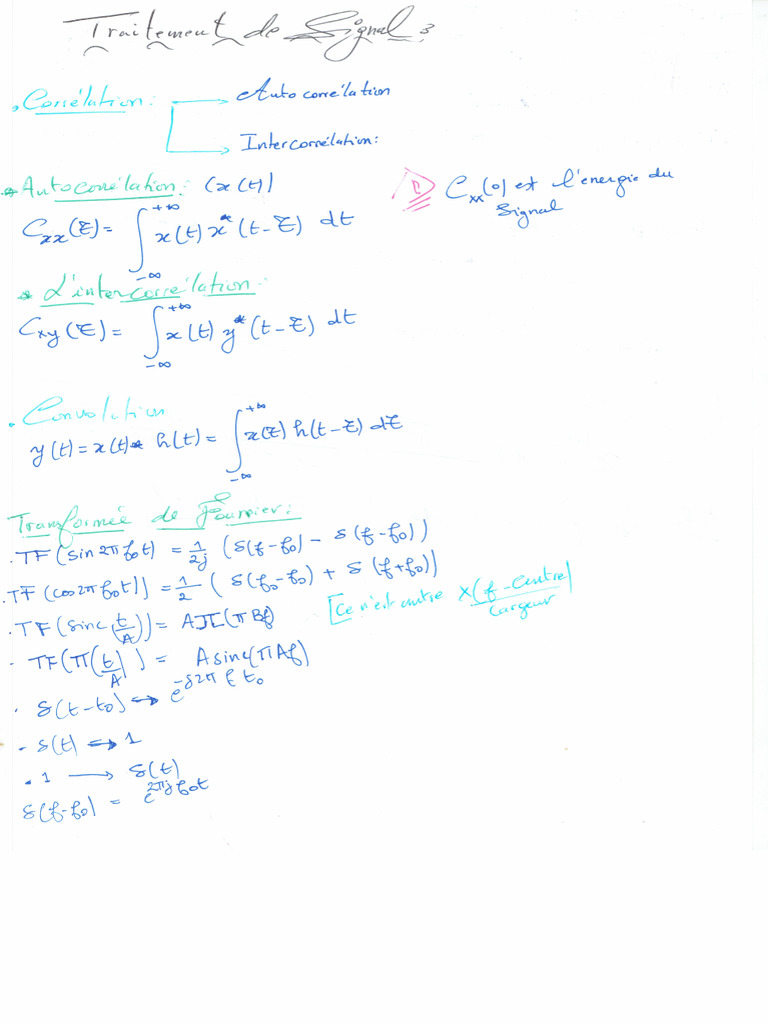 Traitement de Signal :
. Corrélation : → Autocorrélation
→ Intercorrélation :
* Autocorrélation : (x(t))
C_xx(τ) = ∫_{-∞}^{+∞} x(t) x*(t-τ) dt
C_xx(0) est l'énergie du
Signal
* L'intercorrélation :
C_xy(τ) = ∫_{-∞}^{+∞} x(t) y*(t-τ) dt
. Convolution
y(t) = x(t) * h(t) = ∫_{-∞}^{+∞} x(τ) h(t-τ) dτ
Transformée de Fourrier :
. TF(sin 2π f₀t) = 1/2j (δ(f-f₀) - δ(f-f₀))
. TF(cos 2π f₀t)) = 1/2 (δ(f₀-f₀) + δ(f+f₀))
. TF(sinc(t/A)) = AΠ(πBf)
[Ce n'est autre X(f-Centre)/Largeur
. TF(Π(t/A)) = A sinc(ΠAf)
. δ(t-t₀) ↔ e^{-j2π f t₀}
. δ(t) ↔ 1
. 1 → δ(t)
δ(f-f₀) = e^{2πj f₀t}